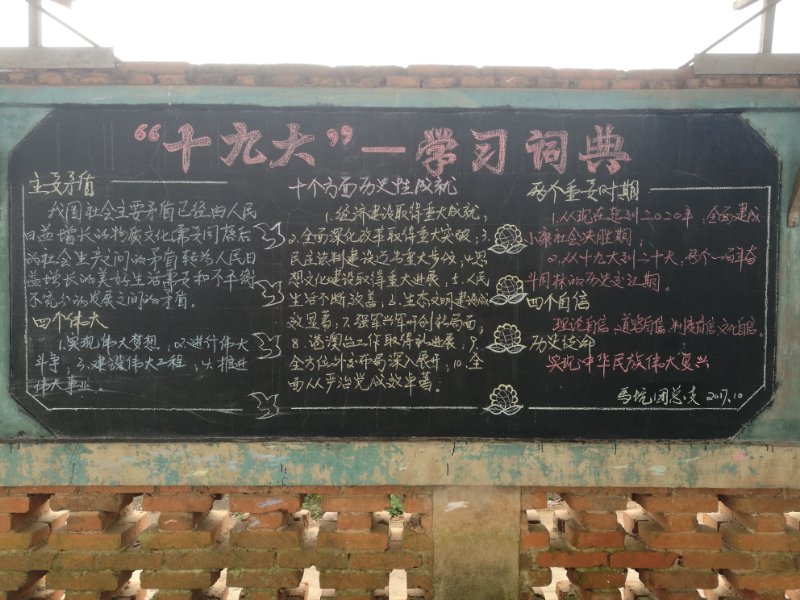 “十九大”—学习词典
主要矛盾
我国社会主要矛盾已经由人民
日益增长的物质文化需要同落后
的社会生产之间的矛盾转为人民日
益增长的美好生活需要和不平衡
不充分的发展之间的矛盾。
四个伟大
1.实现伟大梦想,2.进行伟大
斗争,3.建设伟大工程,4.推进
伟大事业。
十个方面历史性成就
1.经济建设取得重大成就,
2.全面深化改革取得重大突破,3.
民主法制建设迈出重大步伐,4.思
想文化建设取得重大进展,5.人民
生活不断改善,6.生态文明建设成
效显著,7.强军兴军开创新局面,
8.港澳台工作取得新进展,9.
全方位外交布局深入展开,10.全
面从严治党成效卓著。
两个重要时期
1.从现在到二〇二〇年,全面建成
小康社会决胜期,
2.从十九大到二十大,两个一百年奋
斗目标的历史交汇期。
四个自信
理论自信、道路自信、制度自信、文化自信。
历史使命
实现中华民族伟大复兴
马坑团总支 2017.10